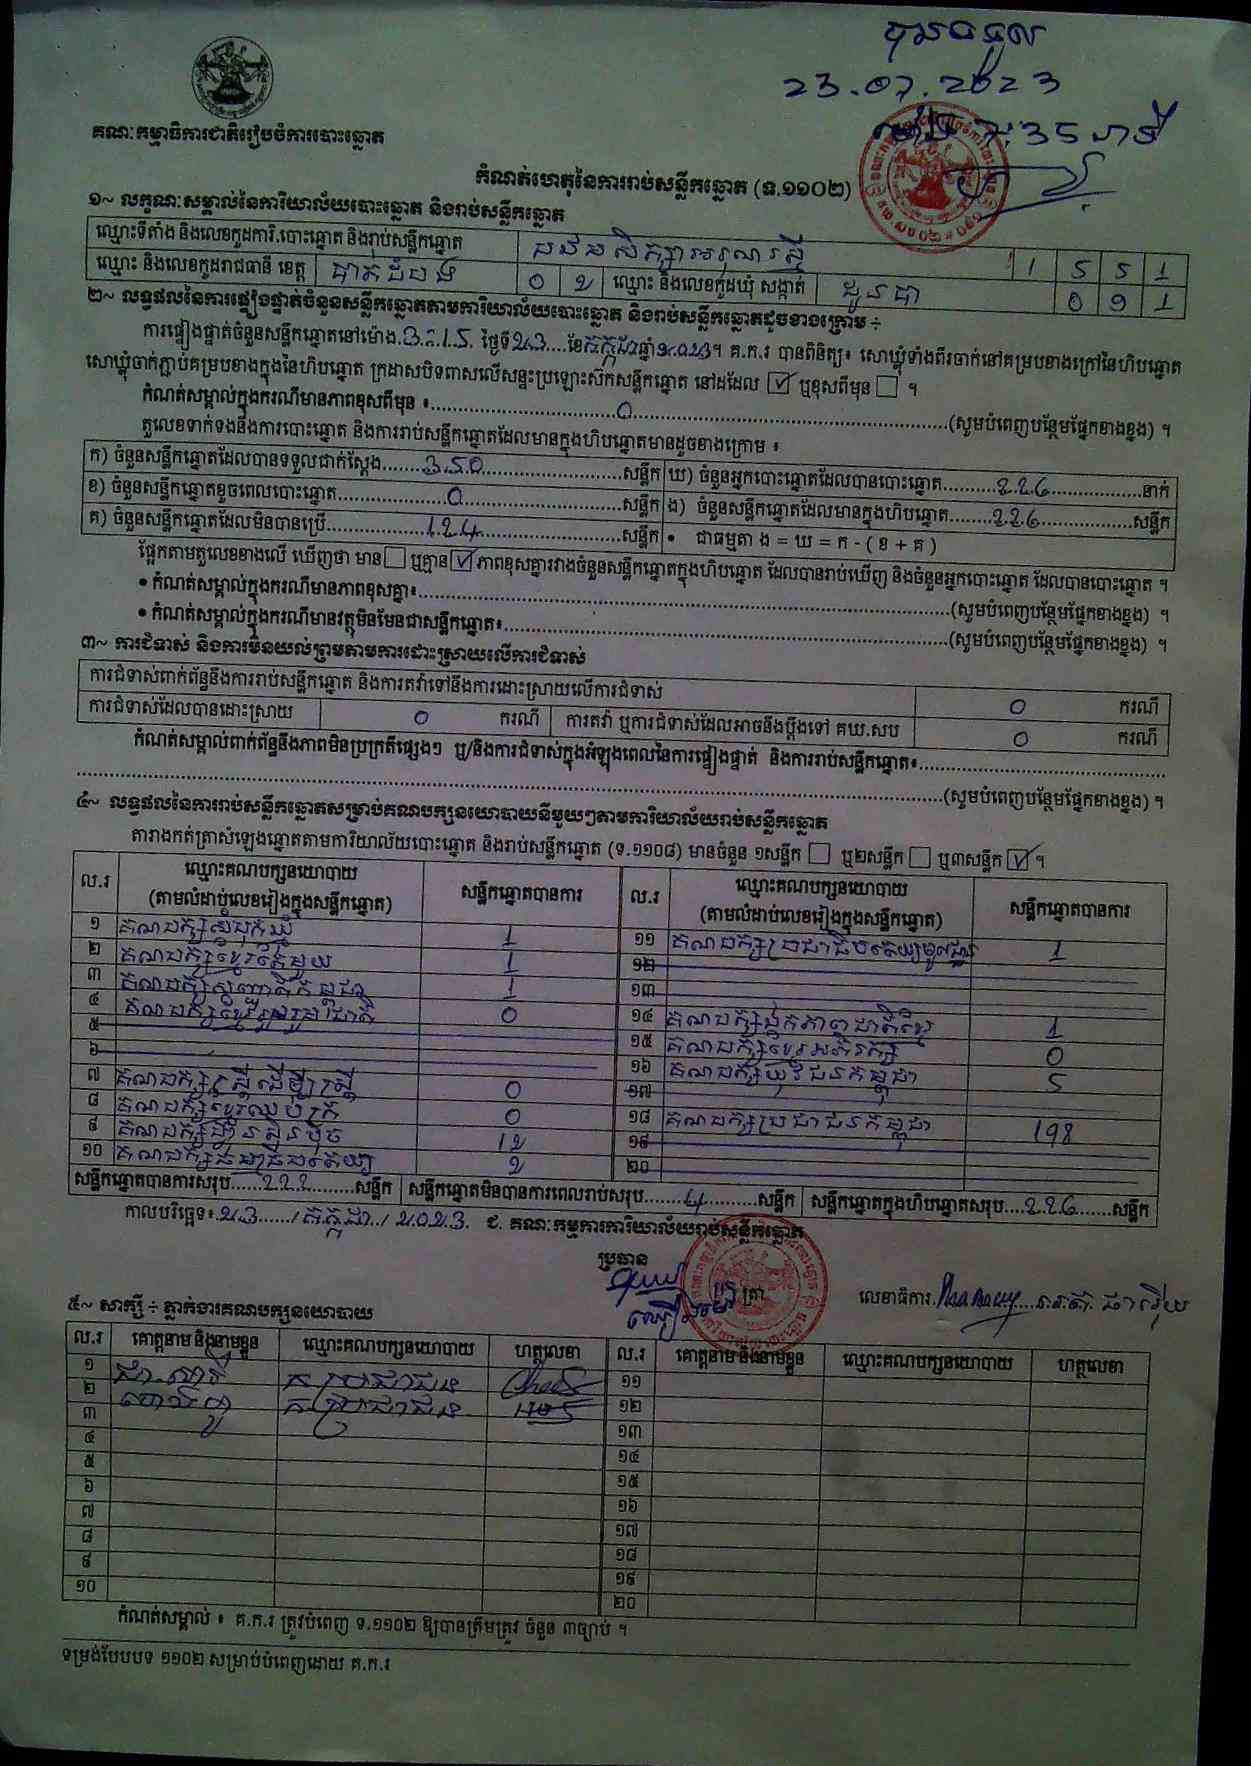 បានទទួល
23.07.2023
ម៉ោង 35 នាទី
គណៈកម្មាធិការជាតិរៀបចំការបោះឆ្នោត
កំណត់ហេតុនៃការរាប់សន្លឹកឆ្នោត (ទ.១១០២)
១~ លក្ខណៈសម្គាល់នៃការិយាល័យបោះឆ្នោត និងរាប់សន្លឹកឆ្នោត
ឈ្មោះទីតាំង និងលេខកូដការិ.បោះឆ្នោត និងរាប់សន្លឹកឆ្នោត 1 5 5 1
ឈ្មោះ និងលេខកូដរាជធានី ខេត្ត បាត់ដំបង 0 2 ឈ្មោះ និងលេខកូដឃុំ សង្កាត់ ដូនបា 0 9 1
២~ លទ្ធផលនៃការផ្ទៀងផ្ទាត់ចំនួនសន្លឹកឆ្នោតតាមការិយាល័យបោះឆ្នោត និងរាប់សន្លឹកឆ្នោតដូចខាងក្រោម ÷
ការផ្ទៀងផ្ទាត់ចំនួនសន្លឹកឆ្នោតនៅម៉ោង.3:15. ថ្ងៃទី23....ខែកក្កដាឆ្នាំ2023។ គ.ក.រ បានពិនិត្យ៖ សោឃ្លុំទាំងពីរចាក់នៅគម្របខាងក្រៅនៃហិបឆ្នោត
សោឃ្លុំចាក់ភ្ជាប់គម្របខាងក្នុងនៃហិបឆ្នោត ក្រដាសបិទពាសលើសន្ទះប្រឡោះស៊កសន្លឹកឆ្នោត នៅដដែល ☑ ឬខុសពីមុន ☐ ។
កំណត់សម្គាល់ក្នុងករណីមានភាពខុសពីមុន ៖..........0..........(សូមបំពេញបន្ថែមផ្នែកខាងខ្នង) ។
តួលេខទាក់ទងនឹងការបោះឆ្នោត និងការរាប់សន្លឹកឆ្នោតដែលមានក្នុងហិបឆ្នោតមានដូចខាងក្រោម ៖
ក) ចំនួនសន្លឹកឆ្នោតដែលបានទទួលជាក់ស្តែង.......350..........សន្លឹក ឃ) ចំនួនអ្នកបោះឆ្នោតដែលបានបោះឆ្នោត..........226..........នាក់
ខ) ចំនួនសន្លឹកឆ្នោតខូចពេលបោះឆ្នោត..........0..........សន្លឹក ង) ចំនួនសន្លឹកឆ្នោតដែលមានក្នុងហិបឆ្នោត........226..........សន្លឹក
គ) ចំនួនសន្លឹកឆ្នោតដែលមិនបានប្រើ..........124..........សន្លឹក • ជាធម្មតា ង = ឃ = ក - ( ខ + គ )
ផ្អែកតាមតួលេខខាងលើ ឃើញថា មាន ☐ ឬគ្មាន ☑ ភាពខុសគ្នារវាងចំនួនសន្លឹកឆ្នោតក្នុងហិបឆ្នោត ដែលបានរាប់ឃើញ និងចំនួនអ្នកបោះឆ្នោត ដែលបានបោះឆ្នោត ។
• កំណត់សម្គាល់ក្នុងករណីមានភាពខុសគ្នា៖..........(សូមបំពេញបន្ថែមផ្នែកខាងខ្នង) ។
• កំណត់សម្គាល់ក្នុងករណីមានវត្ថុមិនមែនជាសន្លឹកឆ្នោត៖..........(សូមបំពេញបន្ថែមផ្នែកខាងខ្នង) ។
៣~ ការជំទាស់ និងការមិនយល់ព្រមតាមការដោះស្រាយលើការជំទាស់
ការជំទាស់ពាក់ព័ន្ធនឹងការរាប់សន្លឹកឆ្នោត និងការតវ៉ាទៅនឹងការដោះស្រាយលើការជំទាស់ 0 ករណី
ការជំទាស់ដែលបានដោះស្រាយ 0 ករណី ការតវ៉ា ឬការជំទាស់ដែលអាចនឹងប្តឹងទៅ គឃ.សប 0 ករណី
កំណត់សម្គាល់ពាក់ព័ន្ធនឹងភាពមិនប្រក្រតីផ្សេងៗ ឬ/និងការជំទាស់ក្នុងអំឡុងពេលនៃការផ្ទៀងផ្ទាត់ និងការរាប់សន្លឹកឆ្នោត៖..........
..........(សូមបំពេញបន្ថែមផ្នែកខាងខ្នង) ។
៤~ លទ្ធផលនៃការរាប់សន្លឹកឆ្នោតសម្រាប់គណបក្សនយោបាយនីមួយៗតាមការិយាល័យរាប់សន្លឹកឆ្នោត
តារាងកត់ត្រាសំឡេងឆ្នោតតាមការិយាល័យបោះឆ្នោត និងរាប់សន្លឹកឆ្នោត (ទ.១១០៨) មានចំនួន ១សន្លឹក ☐ ឬ២សន្លឹក ☐ ឬ៣សន្លឹក ☑ ។
ល.រ ឈ្មោះគណបក្សនយោបាយ (តាមលំដាប់លេខរៀងក្នុងសន្លឹកឆ្នោត) សន្លឹកឆ្នោតបានការ ល.រ ឈ្មោះគណបក្សនយោបាយ (តាមលំដាប់លេខរៀងក្នុងសន្លឹកឆ្នោត) សន្លឹកឆ្នោតបានការ
១ គណបក្សសំបុកឃ្មុំ 1 ១១ គណបក្សប្រជាធិបតេយ្យមូលដ្ឋាន 1
២ គណបក្សខ្មែរតែមួយ 1 ១២
៣ គណបក្សសញ្ជាតិកម្ពុជា 1 ១៣
៤ គណបក្សខ្មែររួបរួមជាតិ 0 ១៤ គណបក្សឯកភាពជាតិខ្មែរ 1
៥ ១៥ គណបក្សខ្មែរអភិរក្ស 0
៦ ១៦ គណបក្សយុវជនកម្ពុជា 5
៧ គណបក្សស្ត្រីដើម្បីស្ត្រី 0 ១៧
៨ គណបក្សខ្មែរឈប់ក្រ 0 ១៨ គណបក្សប្រជាជនកម្ពុជា 198
៩ គណបក្សហ៊្វុនស៊ិនប៉ិច 12 ១៩
១០ គណបក្សធម្មាធិបតេយ្យ 2 ២០
សន្លឹកឆ្នោតបានការសរុប......222.........សន្លឹក សន្លឹកឆ្នោតមិនបានការពេលរាប់សរុប.......4..........សន្លឹក សន្លឹកឆ្នោតក្នុងហិបឆ្នោតសរុប....226.......សន្លឹក
កាលបរិច្ឆេទ៖.23...../កក្កដា../2023. ជ. គណៈកម្មការការិយាល័យរាប់សន្លឹកឆ្នោត
ប្រធាន
ត្រា
លេខាធិការ
៥~ សាក្សី ÷ ភ្នាក់ងារគណបក្សនយោបាយ
ល.រ គោត្តនាម និងនាមខ្លួន ឈ្មោះគណបក្សនយោបាយ ហត្ថលេខា ល.រ គោត្តនាម និងនាមខ្លួន ឈ្មោះគណបក្សនយោបាយ ហត្ថលេខា
១ គ ប្រជាជន ១១
២ គ ប្រជាជន ១២
៣ ១៣
៤ ១៤
៥ ១៥
៦ ១៦
៧ ១៧
៨ ១៨
៩ ១៩
១០ ២០
កំណត់សម្គាល់ ៖ គ.ក.រ ត្រូវបំពេញ ទ.១១០២ ឱ្យបានត្រឹមត្រូវ ចំនួន ៣ច្បាប់ ។
ទម្រង់បែបបទ ១១០២ សម្រាប់បំពេញដោយ គ.ក.រ